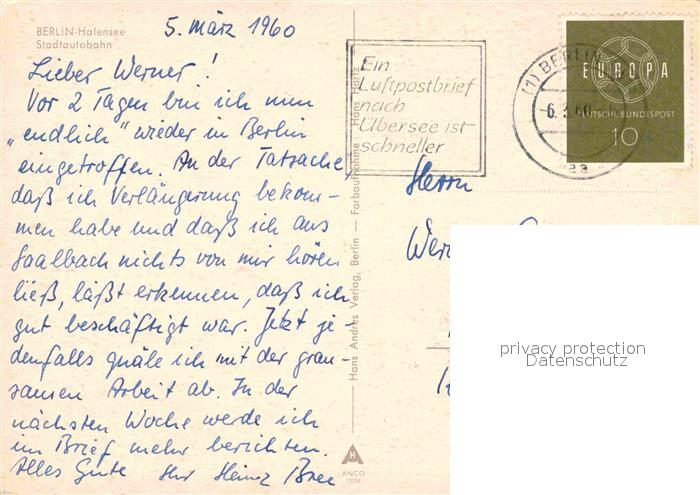 BERLIN-Halensee
Stadtautobahn
5. März 1960
Lieber Werner!
Vor 2 Tagen bin ich nun
„endlich" wieder in Berlin
eingetroffen. An der Tatsache,
daß ich Verlängerung bekom-
men habe und daß ich aus
Saalbach nichts von mir hören
ließ, läßt erkennen, daß ich
gut beschäftigt war. Jetzt je-
denfalls quäle ich mit der grau-
samen Arbeit ab. In der
nächsten Woche werde ich
im Brief mehr berichten.
Alles Gute Ihr Heinz
Hans Andres Verlag, Berlin — Farbaufnahme Hans Hartz
H
ANCO
Ein
Luftpostbrief
nach
Übersee ist
schneller
(1) BERLIN
-6.3.60
EUROPA
DEUTSCHE BUNDESPOST
10
Herrn
privacy protection
Datenschutz